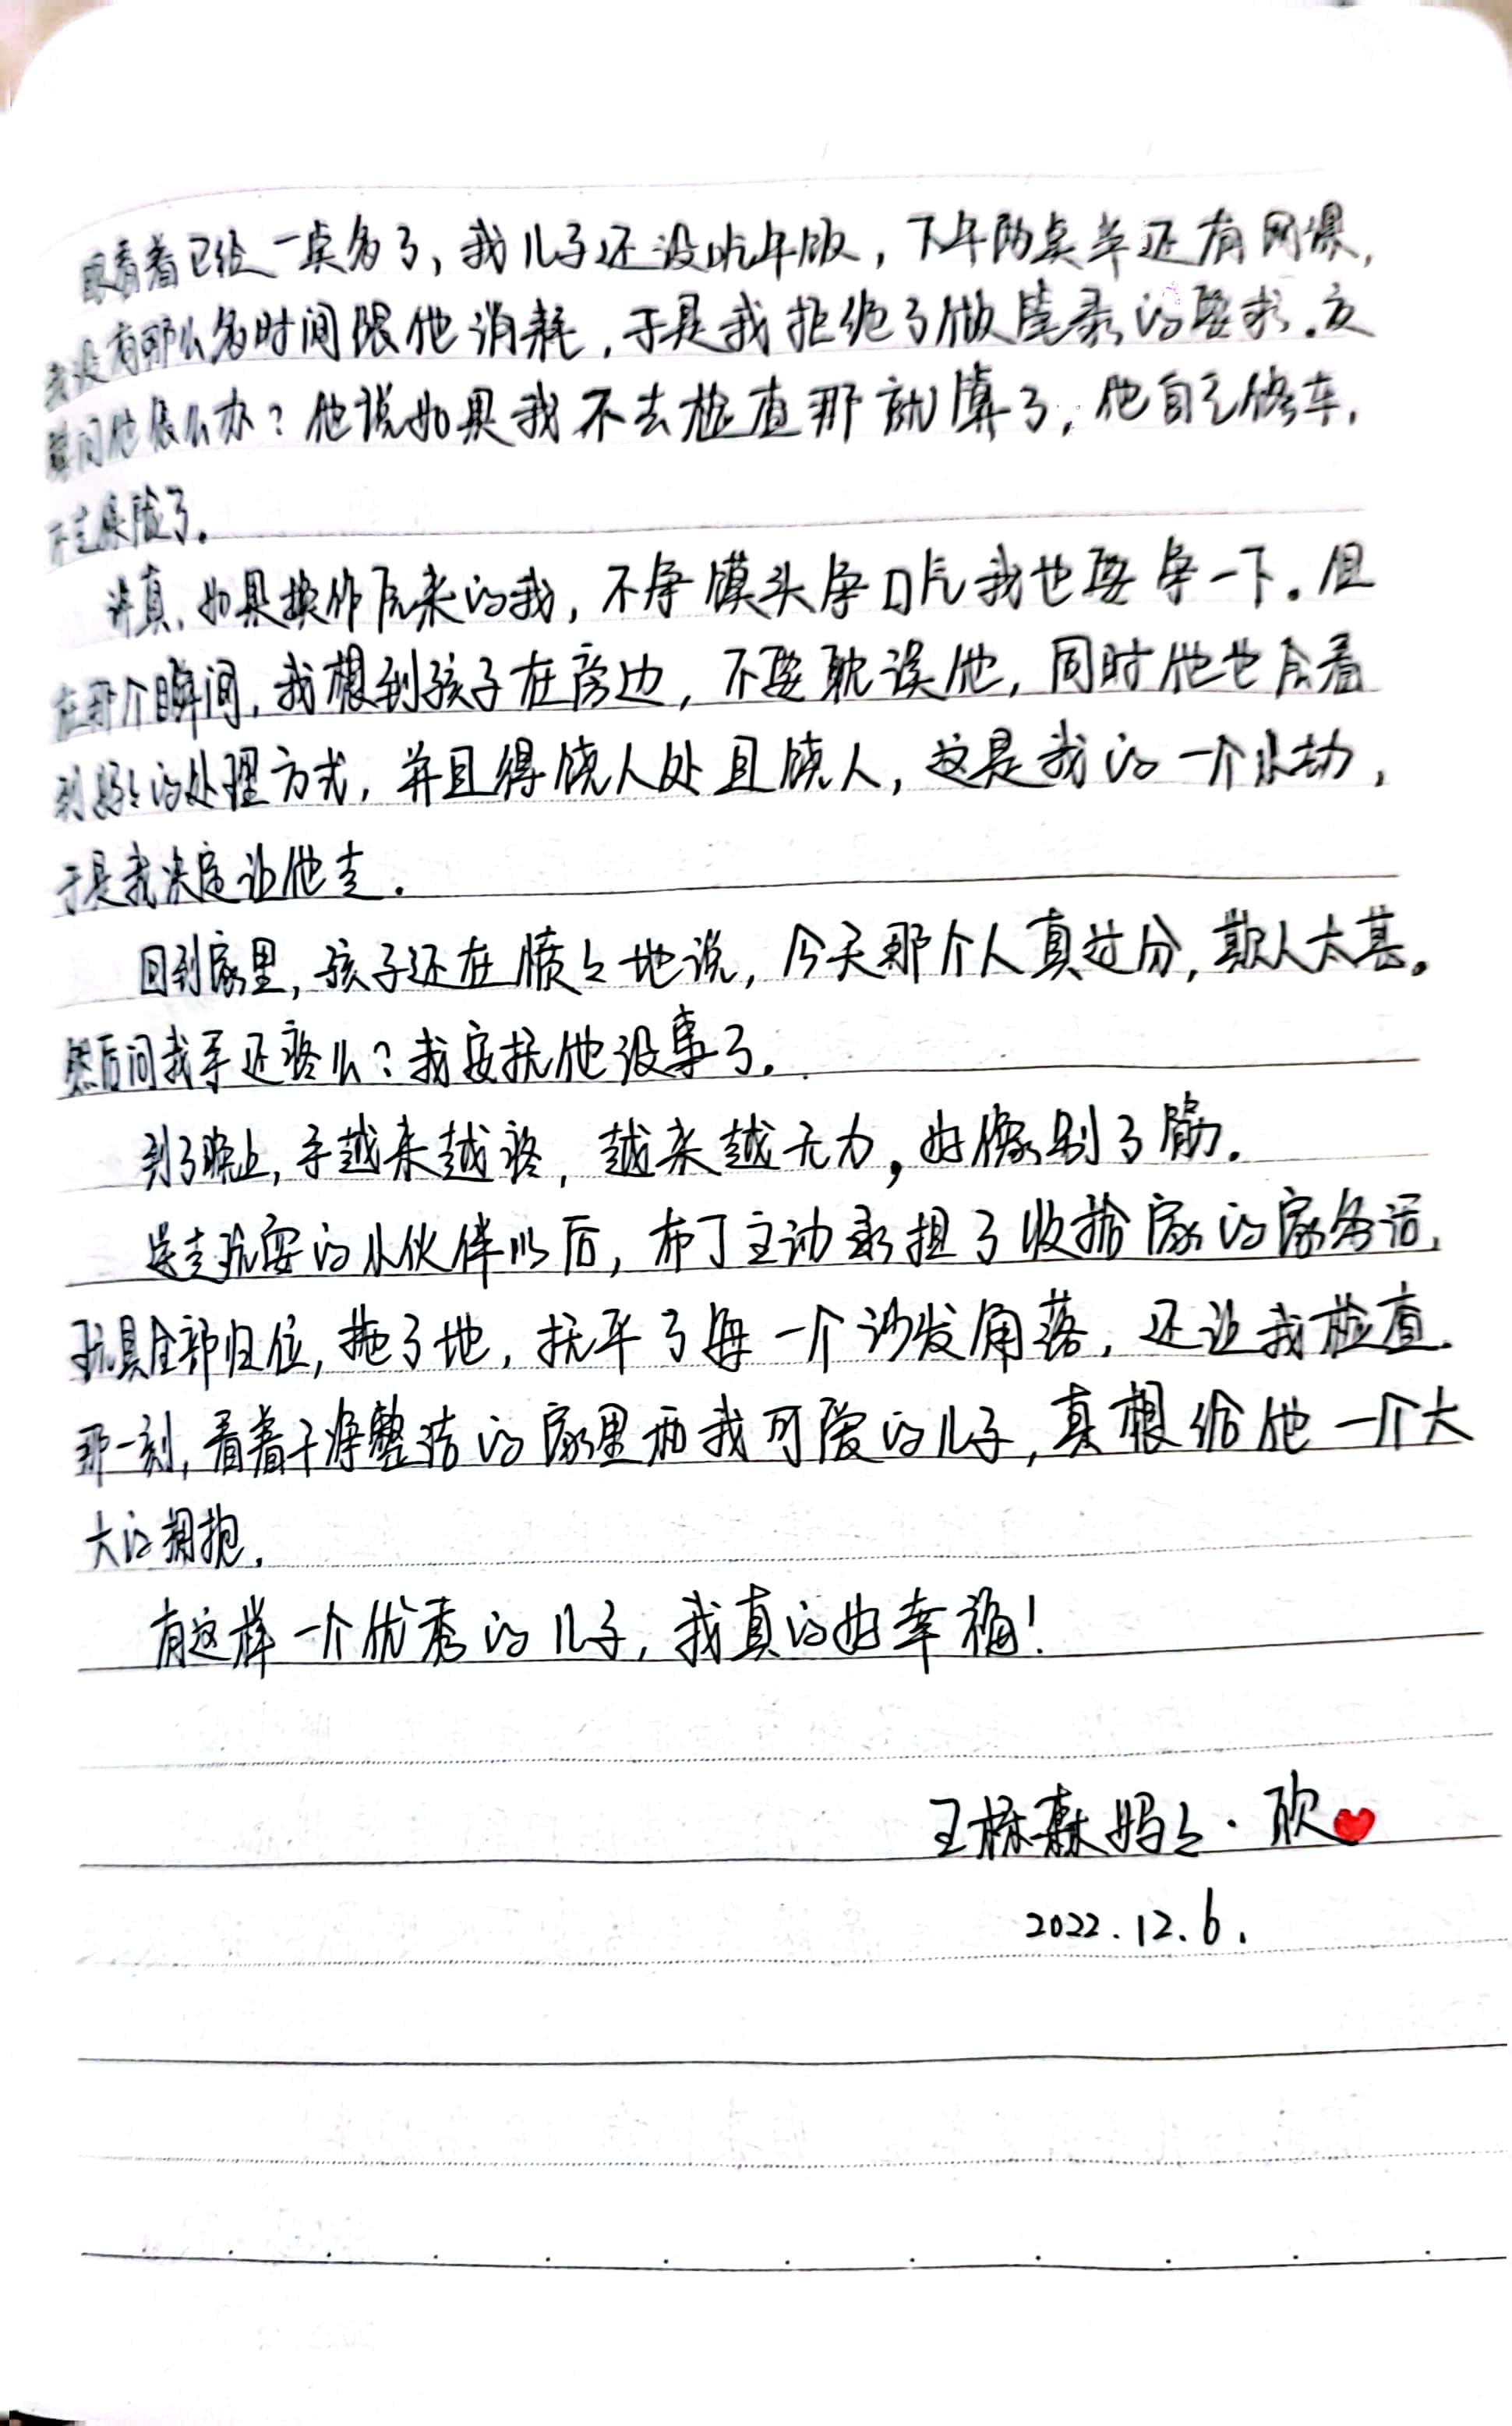 眼看着已经一点多了，我儿子还没吃午饭，下午两点半还有网课，
我没有那么多时间跟他消耗，于是我拒绝了做笔录的要求。交
警问他怎么办？他说如果我不去检查那就算了，他自己修车，
不走保险了。
讲真，如果换作原来的我，不争馒头争口气我也要争一下。但
在那个瞬间，我想到孩子在旁边，不要耽误他，同时他也会看
到妈妈的处理方式，并且得饶人处且饶人，这是我的一个小功，
于是我决定让他走。
回到家里，孩子还在愤々地说，今天那个人真过分，欺人太甚。
然后问我手还疼么？我安抚他没事了。
到了晚上，手越来越疼，越来越无力，好像别了筋。
送走玩耍的小伙伴以后，布丁主动承担了收拾家的家务活，
玩具全部归位，拖了地，抚平了每一个沙发角落，还让我检查。
那一刻，看着干净整洁的家里和我可爱的儿子，真想给他一个大
大的拥抱。
有这样一个优秀的儿子，我真的好幸福！
王栎森妈々·欣❤
2022.12.6.